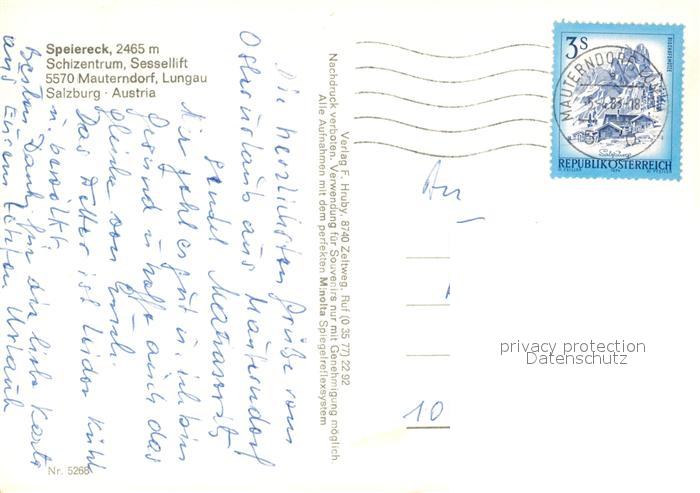 Speiereck, 2465 m
Schizentrum, Sessellift
5570 Mauterndorf, Lungau
Salzburg · Austria
Die herzlichsten Grüße vom
Osterurlaub aus Mauterndorf
sendet
Mir geht es gut u. ich bin
Gesund u. hoffe auch das
gleiche von Euch.
Das Wetter ist leider kühl
u. bewölkt.
Besten Dank für die liebe Karte
aus Eurem letzten Urlaub
Nr. 5268
Verlag F. Hruby, 8740 Zeltweg, Ruf (0 35 77) 22 92
Nachdruck verboten. Verwendung für Souvenirs nur mit Genehmigung möglich.
Alle Aufnahmen mit dem perfekten Minolta Spiegelreflexsystem
3S
MAUTERNDORF
REPUBLIK ÖSTERREICH
An
10
privacy protection
Datenschutz